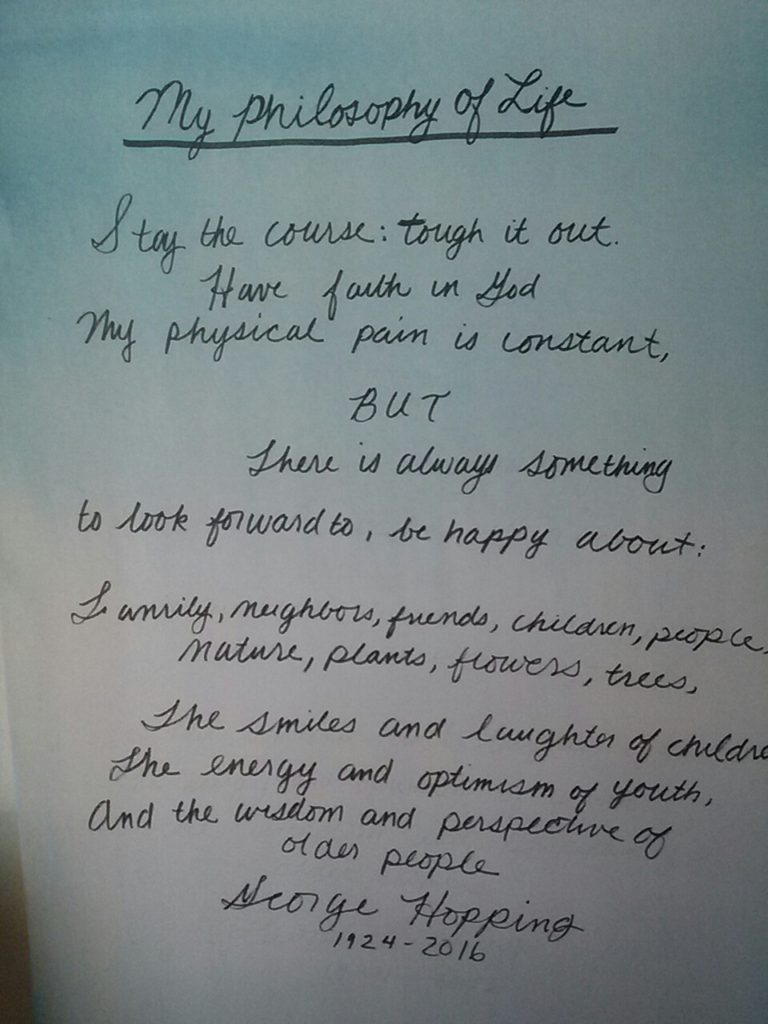 My Philosophy of Life
Stay the course: tough it out.
Have faith in God
My physical pain is constant,
BUT
There is always something
to look forward to, be happy about:
Family, neighbors, friends, children, people,
nature, plants, flowers, trees,
The smiles and laughter of childre
The energy and optimism of youth,
And the wisdom and perspective of
older people
George Hopping
1924-2016